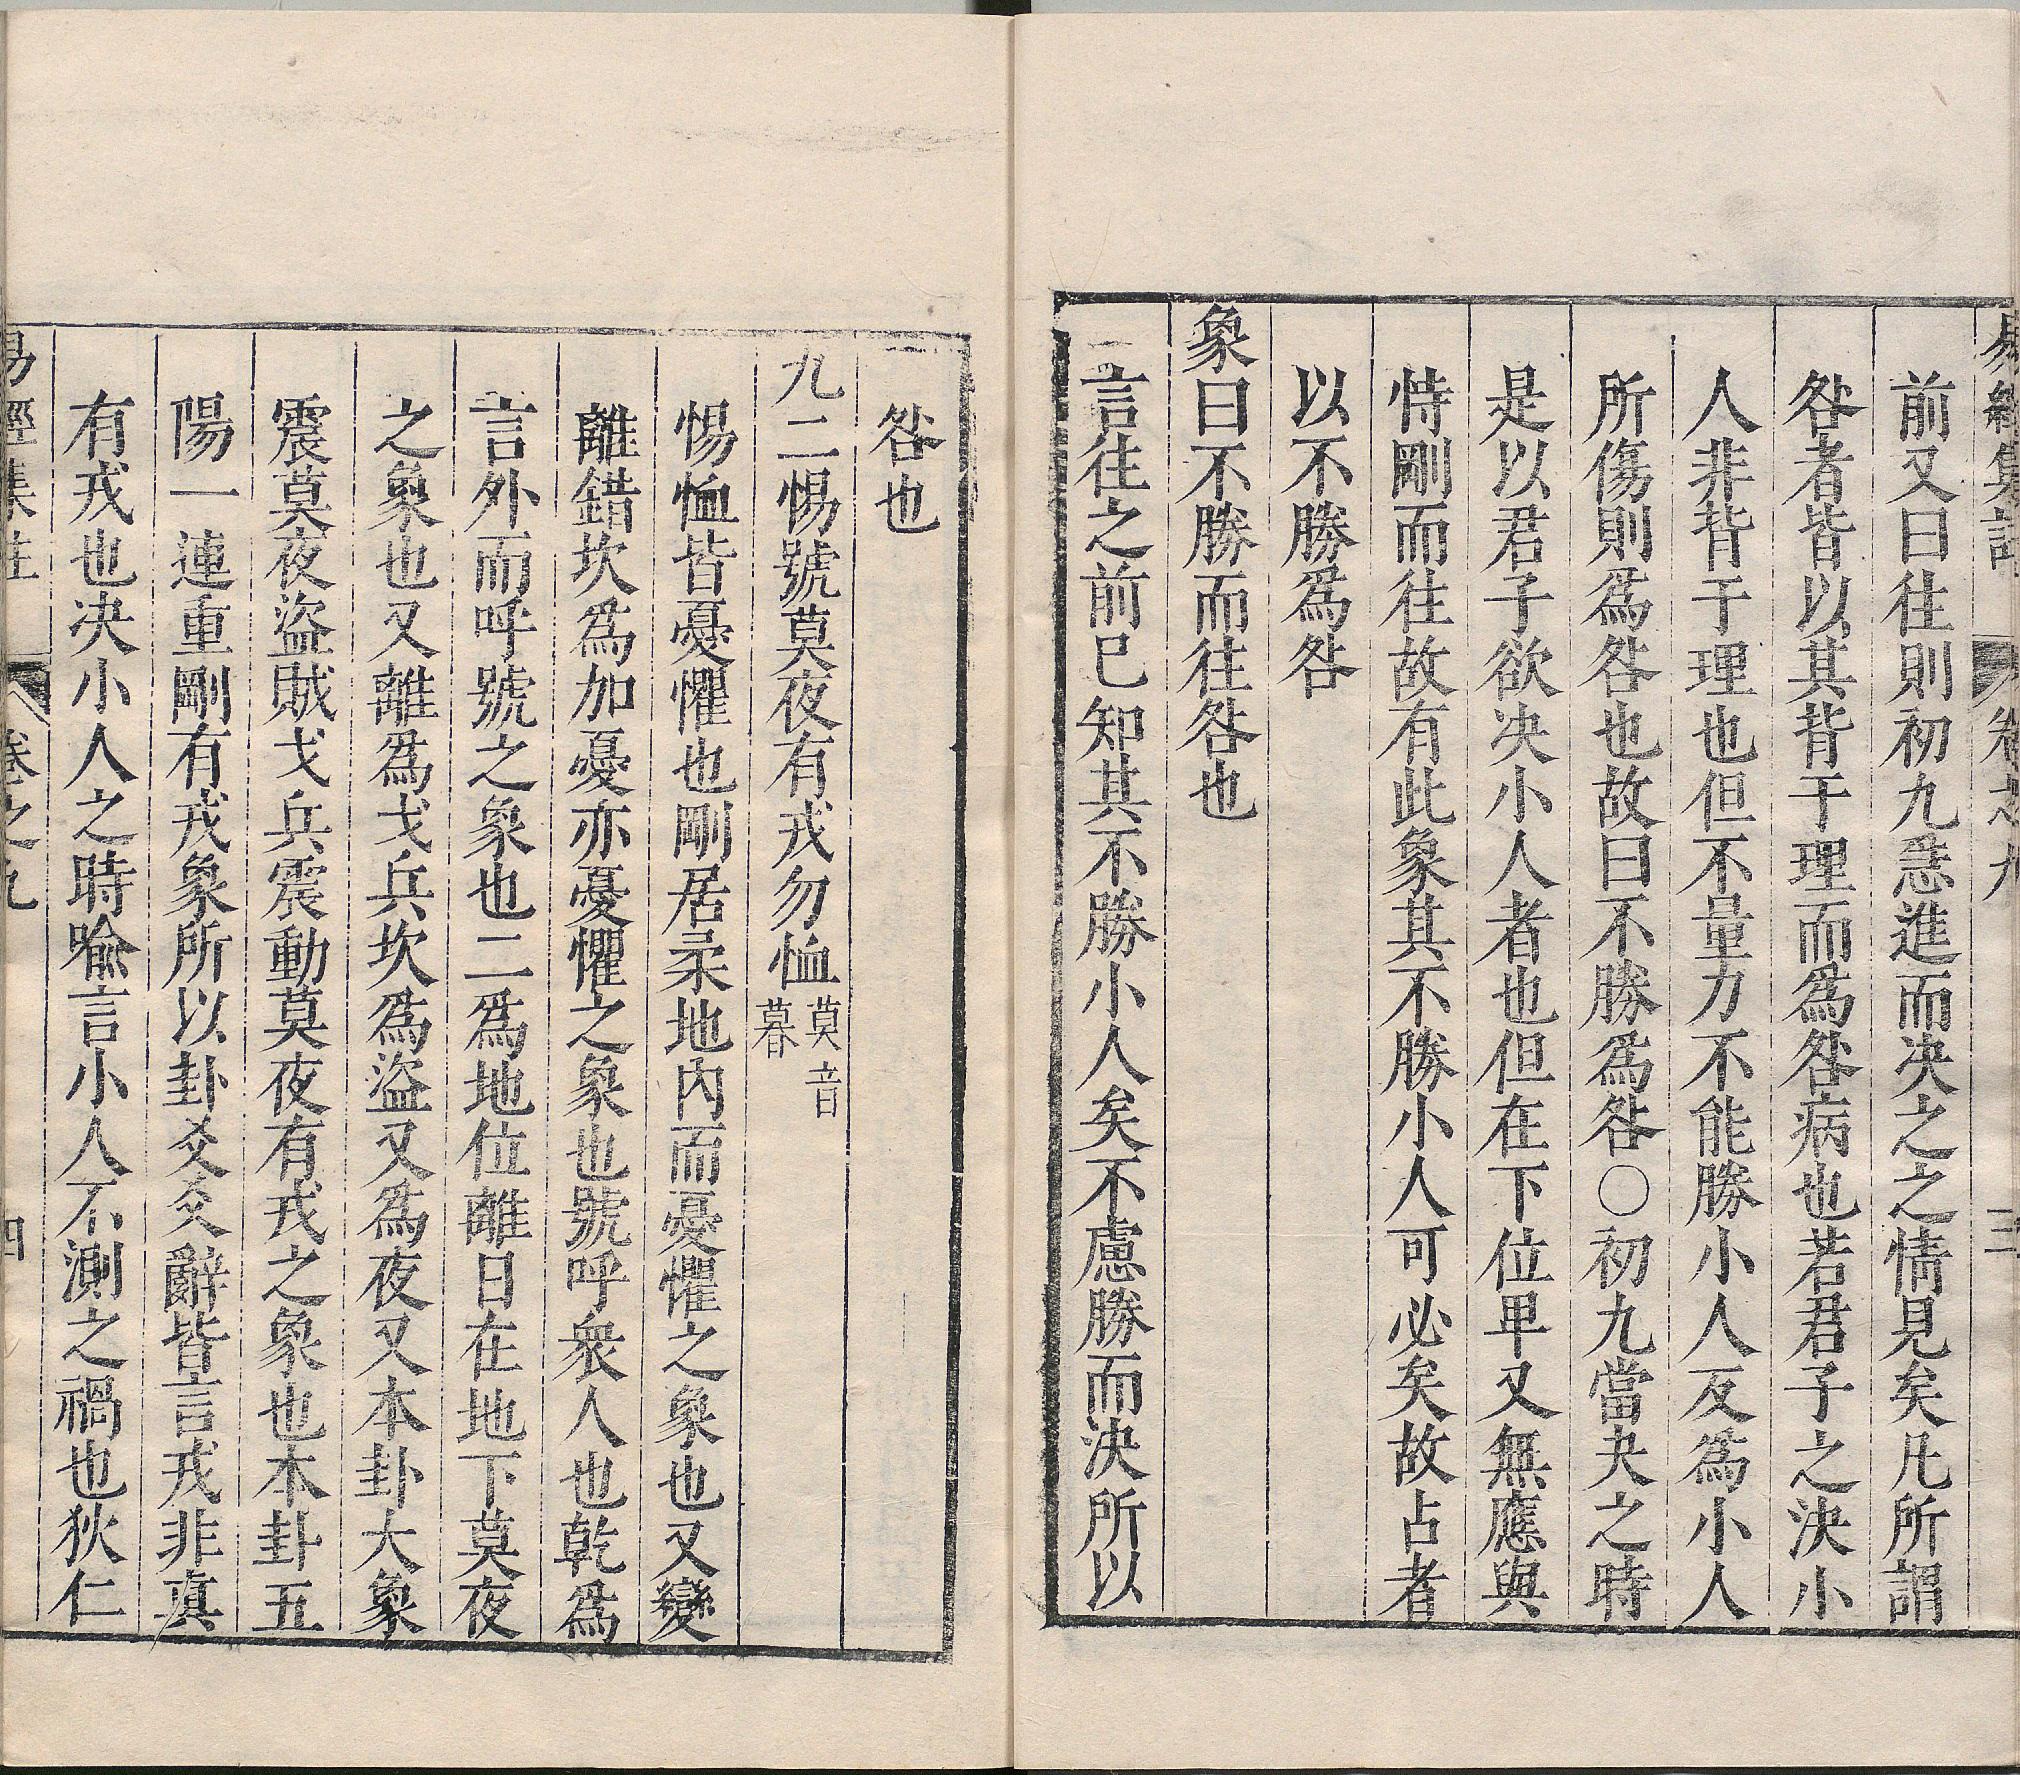 易經集註 卷之九 三
前又曰往則初九恁進而决之之情見矣凡所謂
咎者皆以其背于理而爲咎病也若君子之決小
人非背于理也但不量力不能勝小人反爲小人
所傷則爲咎也故曰不勝爲咎○初九當夬之時
是以君子欲决小人者也但在下位卑又無應與
恃剛而往故有此象其不勝小人可必矣故占者
以不勝爲咎
象曰不勝而往咎也
言往之前巳知其不勝小人矣不慮勝而決所以
咎也
九二惕號莫夜有戎勿恤莫音暮
惕恤皆憂懼也剛居柔地內而憂懼之象也又變
離錯坎爲加憂亦憂懼之象也號呼衆人也乾爲
言外而呼號之象也二爲地位離日在地下莫夜
之象也又離爲戈兵坎爲盜又爲夜又本卦大象
震莫夜盜賊戈兵震動莫夜有戎之象也本卦五
陽一連重剛有戎象所以卦爻爻辭皆言戎非真
有戎也决小人之時喻言小人不測之禍也狄仁
易經集註 卷之九 四